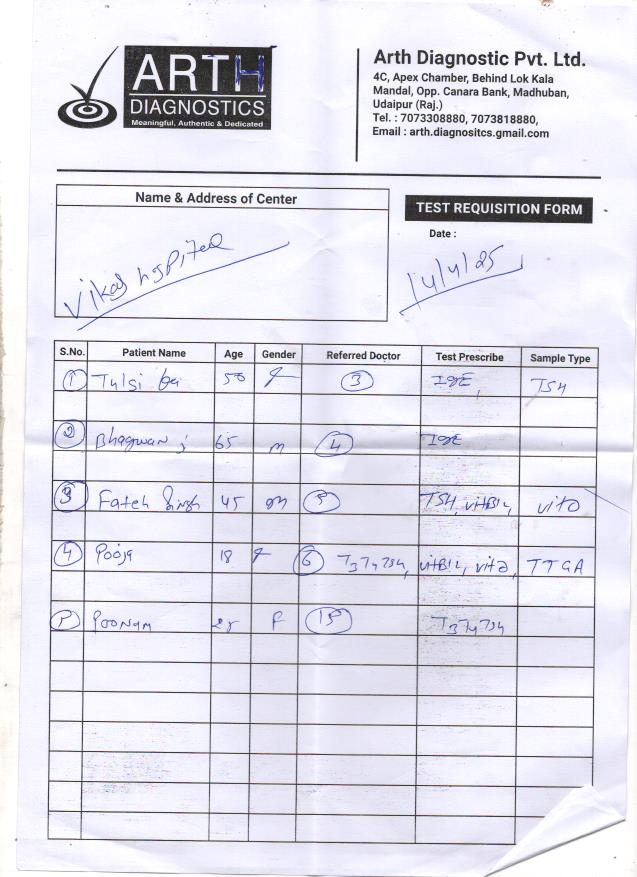 ARTH
DIAGNOSTICS
Meaningful, Authentic & Dedicated
Arth Diagnostic Pvt. Ltd.
4C, Apex Chamber, Behind Lok Kala
Mandal, Opp. Canara Bank, Madhuban,
Udaipur (Raj.)
Tel. : 7073308880, 7073818880,
Email : arth.diagnositcs.gmail.com
Name & Address of Center
Vikas hospital
TEST REQUISITION FORM
Date :
14/4/25
S.No. Patient Name Age Gender Referred Doctor Test Prescribe Sample Type
1 Tulsi bai 50 F 3 IgE, TSH
2 Bhagwan 65 m 4 IgE
3 Fateh Singh 45 m 5 TSH, vitB12, vitD
4 Pooja 18 F 6 T3T4TSH, vitB12, vitD, TTGA
5 Poonam F T3T4TSH